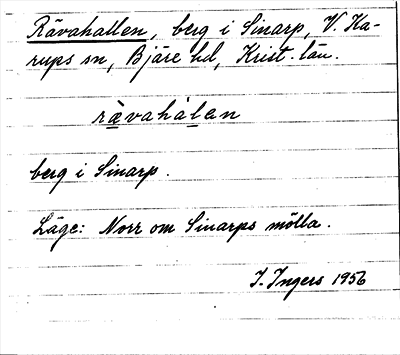 Rävahallen, berg i Sinarp, V. Ka-
rups sn, Bjäre hd, Krist. län.
rävahàlen
berg i Sinarp.
Läge: Norr om Sinarps mölla.
I. Ingers 1956